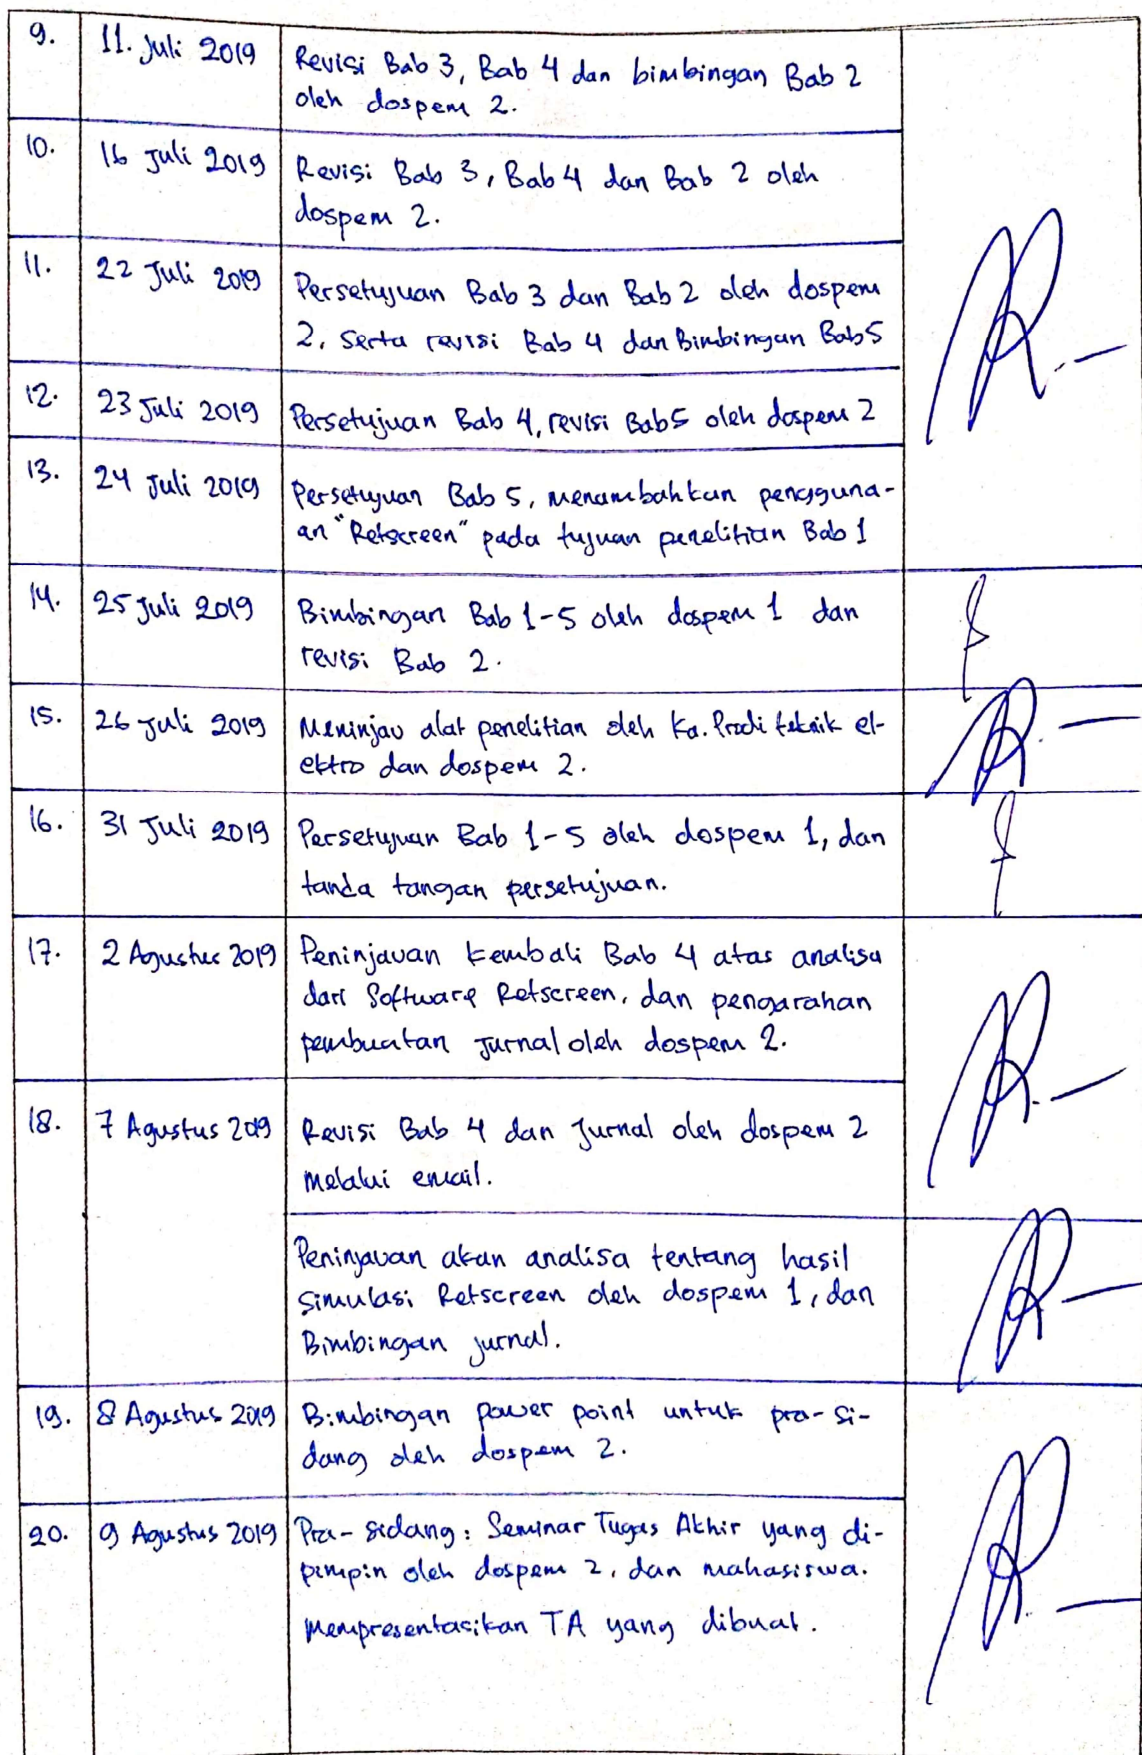 9. 11. Juli 2019 Revisi Bab 3, Bab 4 dan bimbingan Bab 2
oleh dospem 2.
10. 16 Juli 2019 Revisi Bab 3, Bab 4 dan Bab 2 oleh
dospem 2.
11. 22 Juli 2019 Persetujuan Bab 3 dan Bab 2 oleh dospem
2, serta revisi Bab 4 dan Bimbingan Bab 5
12. 23 Juli 2019 Persetujuan Bab 4, revisi Bab 5 oleh dospem 2
13. 24 Juli 2019 Persetujuan Bab 5, menambahkan pengguna-
an "Retscreen" pada tujuan penelitian Bab 1
14. 25 Juli 2019 Bimbingan Bab 1-5 oleh dospem 1 dan
revisi Bab 2.
15. 26 Juli 2019 Meninjau alat penelitian oleh Ka. Prodi teknik el-
ektro dan dospem 2.
16. 31 Juli 2019 Persetujuan Bab 1-5 oleh dospem 1, dan
tanda tangan persetujuan.
17. 2 Agustus 2019 Peninjauan kembali Bab 4 atas analisa
dari Software Retscreen, dan pengarahan
pembuatan jurnal oleh dospem 2.
18. 7 Agustus 2019 Revisi Bab 4 dan Jurnal oleh dospem 2
melalui email.
Peninjauan akan analisa tentang hasil
simulasi Retscreen oleh dospem 1, dan
Bimbingan jurnal.
19. 8 Agustus 2019 Bimbingan power point untuk pra-si-
dang oleh dospem 2.
20. 9 Agustus 2019 Pra-sidang: Seminar Tugas Akhir yang di-
pimpin oleh dospem 2, dan mahasiswa.
mempresentasikan TA yang dibuat.